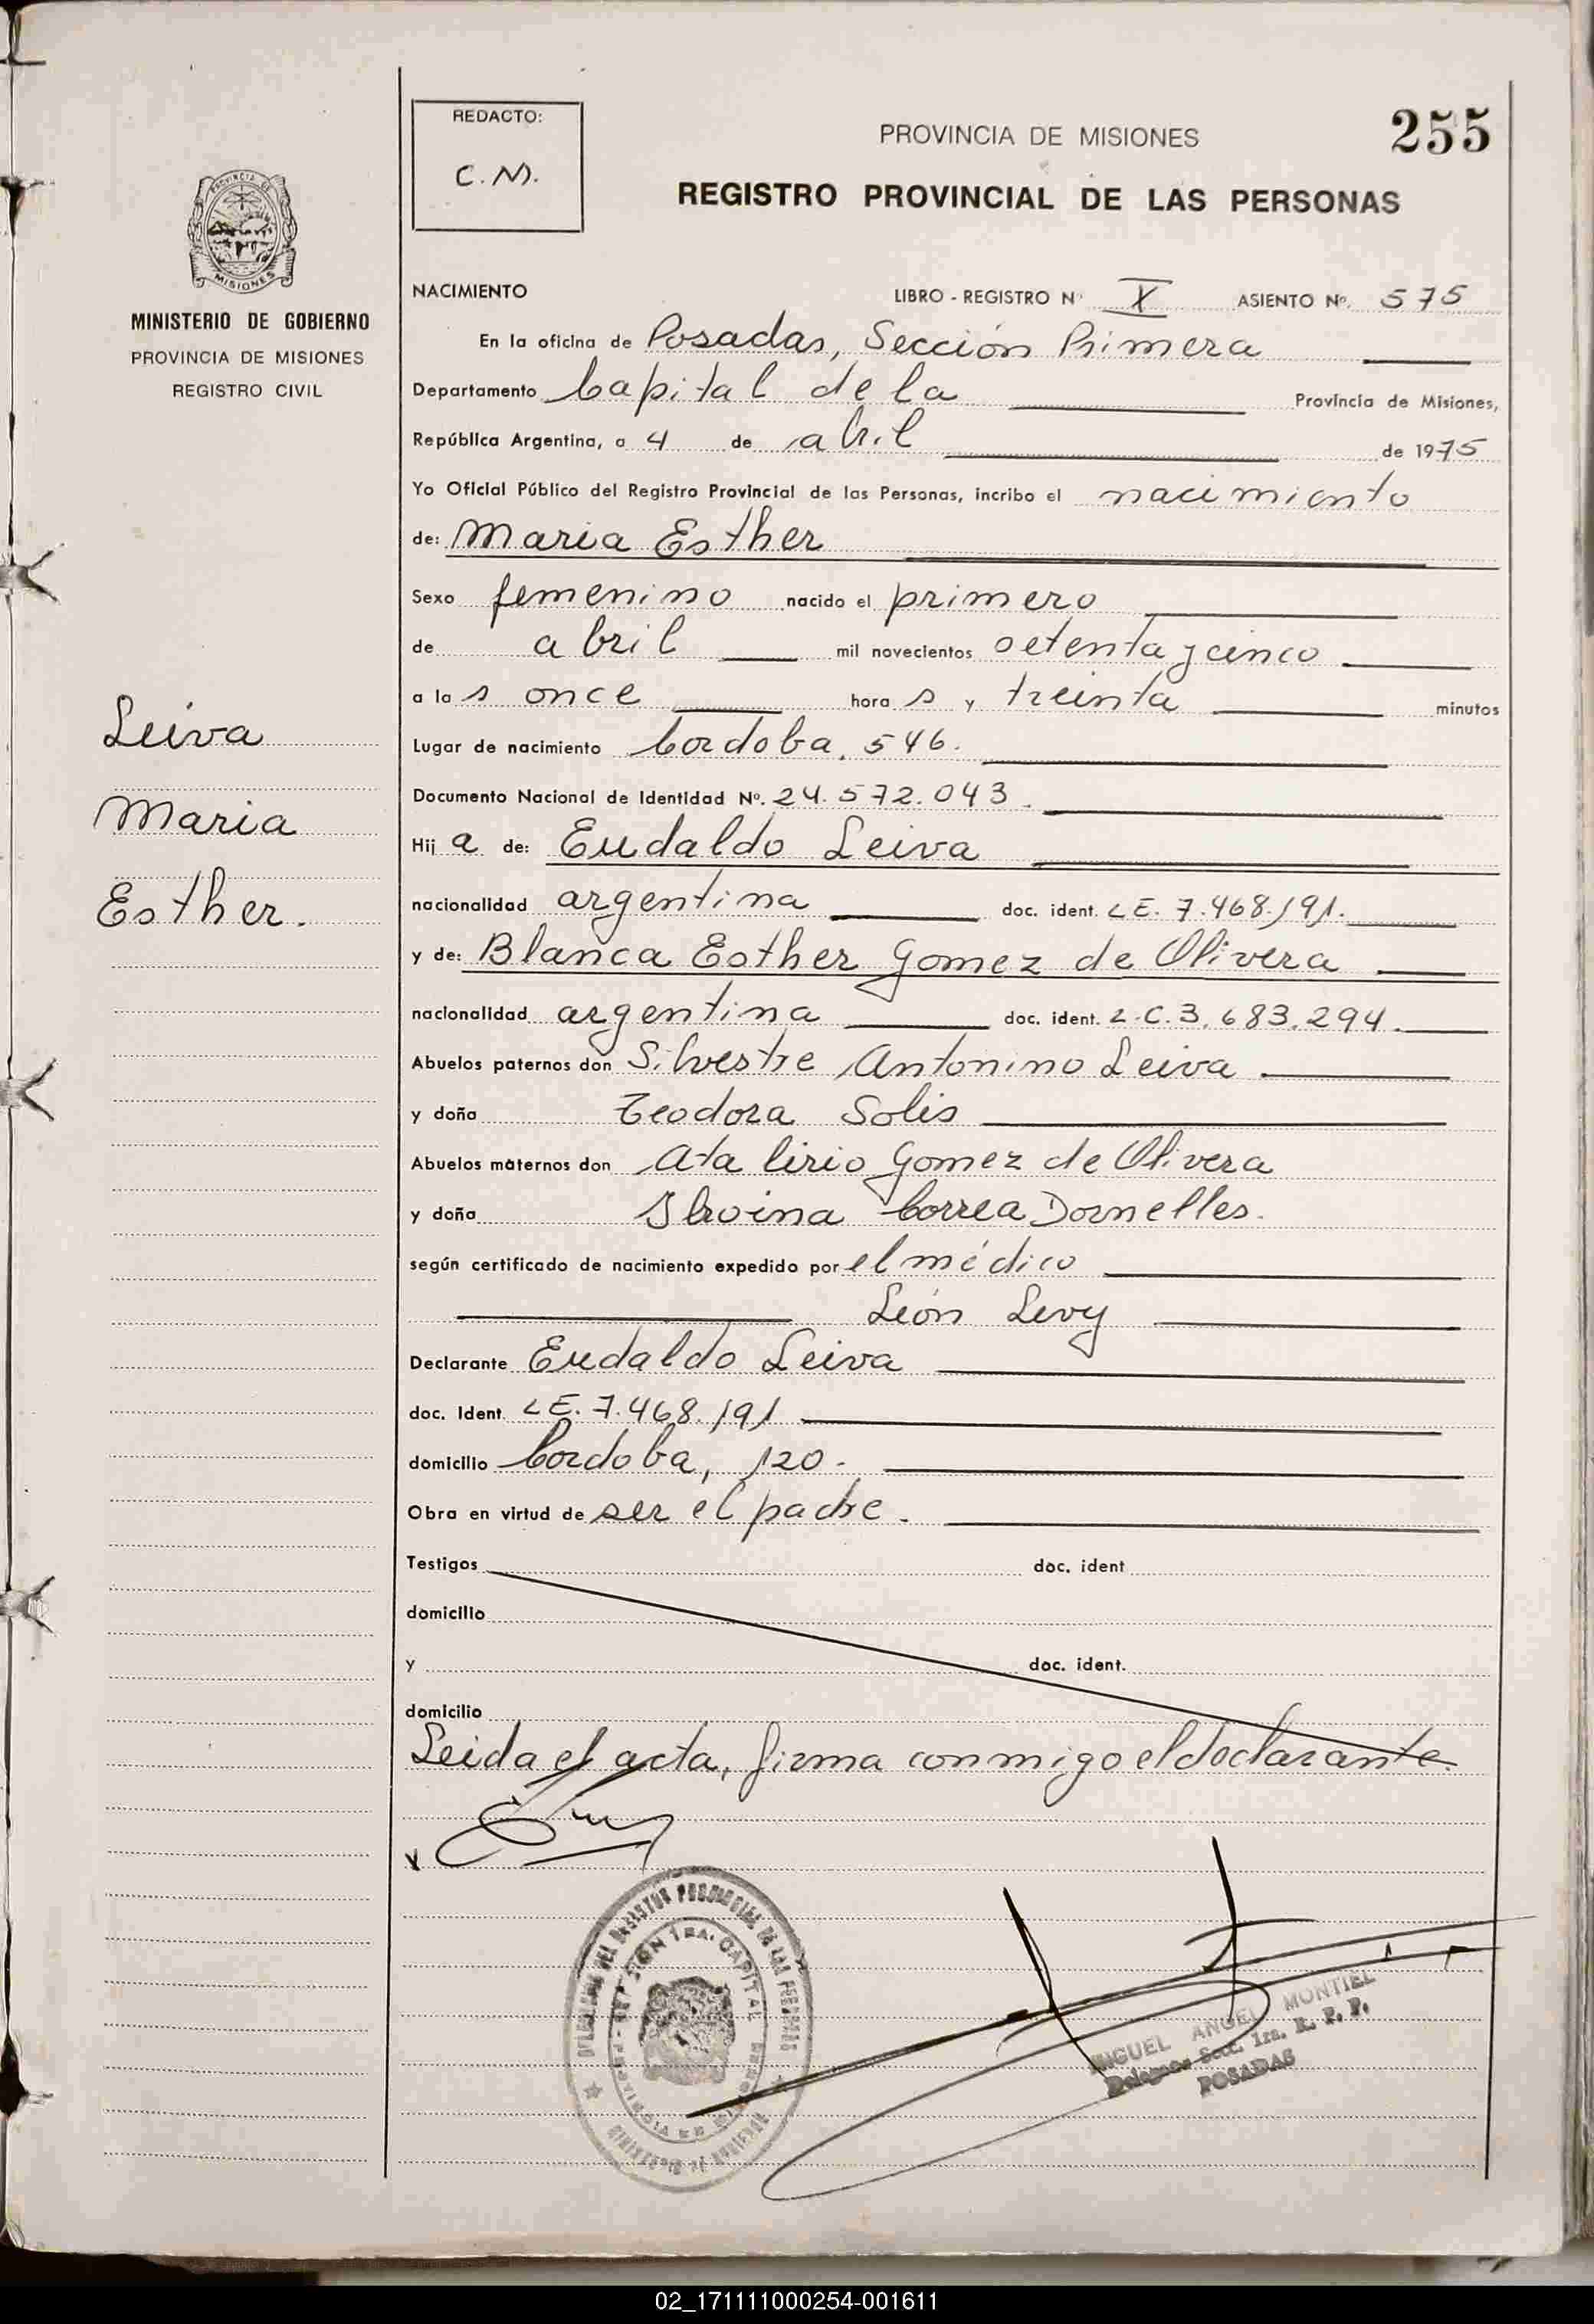 255
REDACTO:
C.M.
PROVINCIA DE MISIONES
REGISTRO PROVINCIAL DE LAS PERSONAS
MISIONES
MINISTERIO DE GOBIERNO
PROVINCIA DE MISIONES
REGISTRO CIVIL
NACIMIENTO LIBRO - REGISTRO Nº X ASIENTO Nº. 575
En la oficina de Posadas, Sección Primera
Departamento Capital de la Provincia de Misiones,
República Argentina, a 4 de abril de 1975
Yo Oficial Público del Registro Provincial de las Personas, incribo el nacimiento
de: Maria Esther
Sexo femenino nacido el primero
de abril mil novecientos setenta y cinco
a las once horas y treinta minutos
Lugar de nacimiento Cordoba, 546.
Documento Nacional de Identidad Nº. 24.572.043.
Hija de: Eudaldo Leiva
nacionalidad argentina doc. ident. LE. 7.468.191.
y de: Blanca Esther Gomez de Olivera
nacionalidad argentina doc. ident. L.C. 3.683.294.
Abuelos paternos don Silvestre Antonino Leiva
y doña Teodora Solis
Abuelos maternos don Atalirio Gomez de Olivera
y doña Correa Dornelles.
según certificado de nacimiento expedido por el médico
León Levy
Declarante Eudaldo Leiva
doc. Ident. LE. 7.468.191
domicilio Cordoba, 120.
Obra en virtud de ser el padre.
Testigos doc. ident
domicilio
y doc. ident.
domicilio
Leida el acta, firma conmigo el declarante.
Leiva
Maria
Esther.
MIGUEL ANGEL MONTIEL
Delegado Secc. 1ra. R. P. P.
POSADAS
02_171111000254-001611